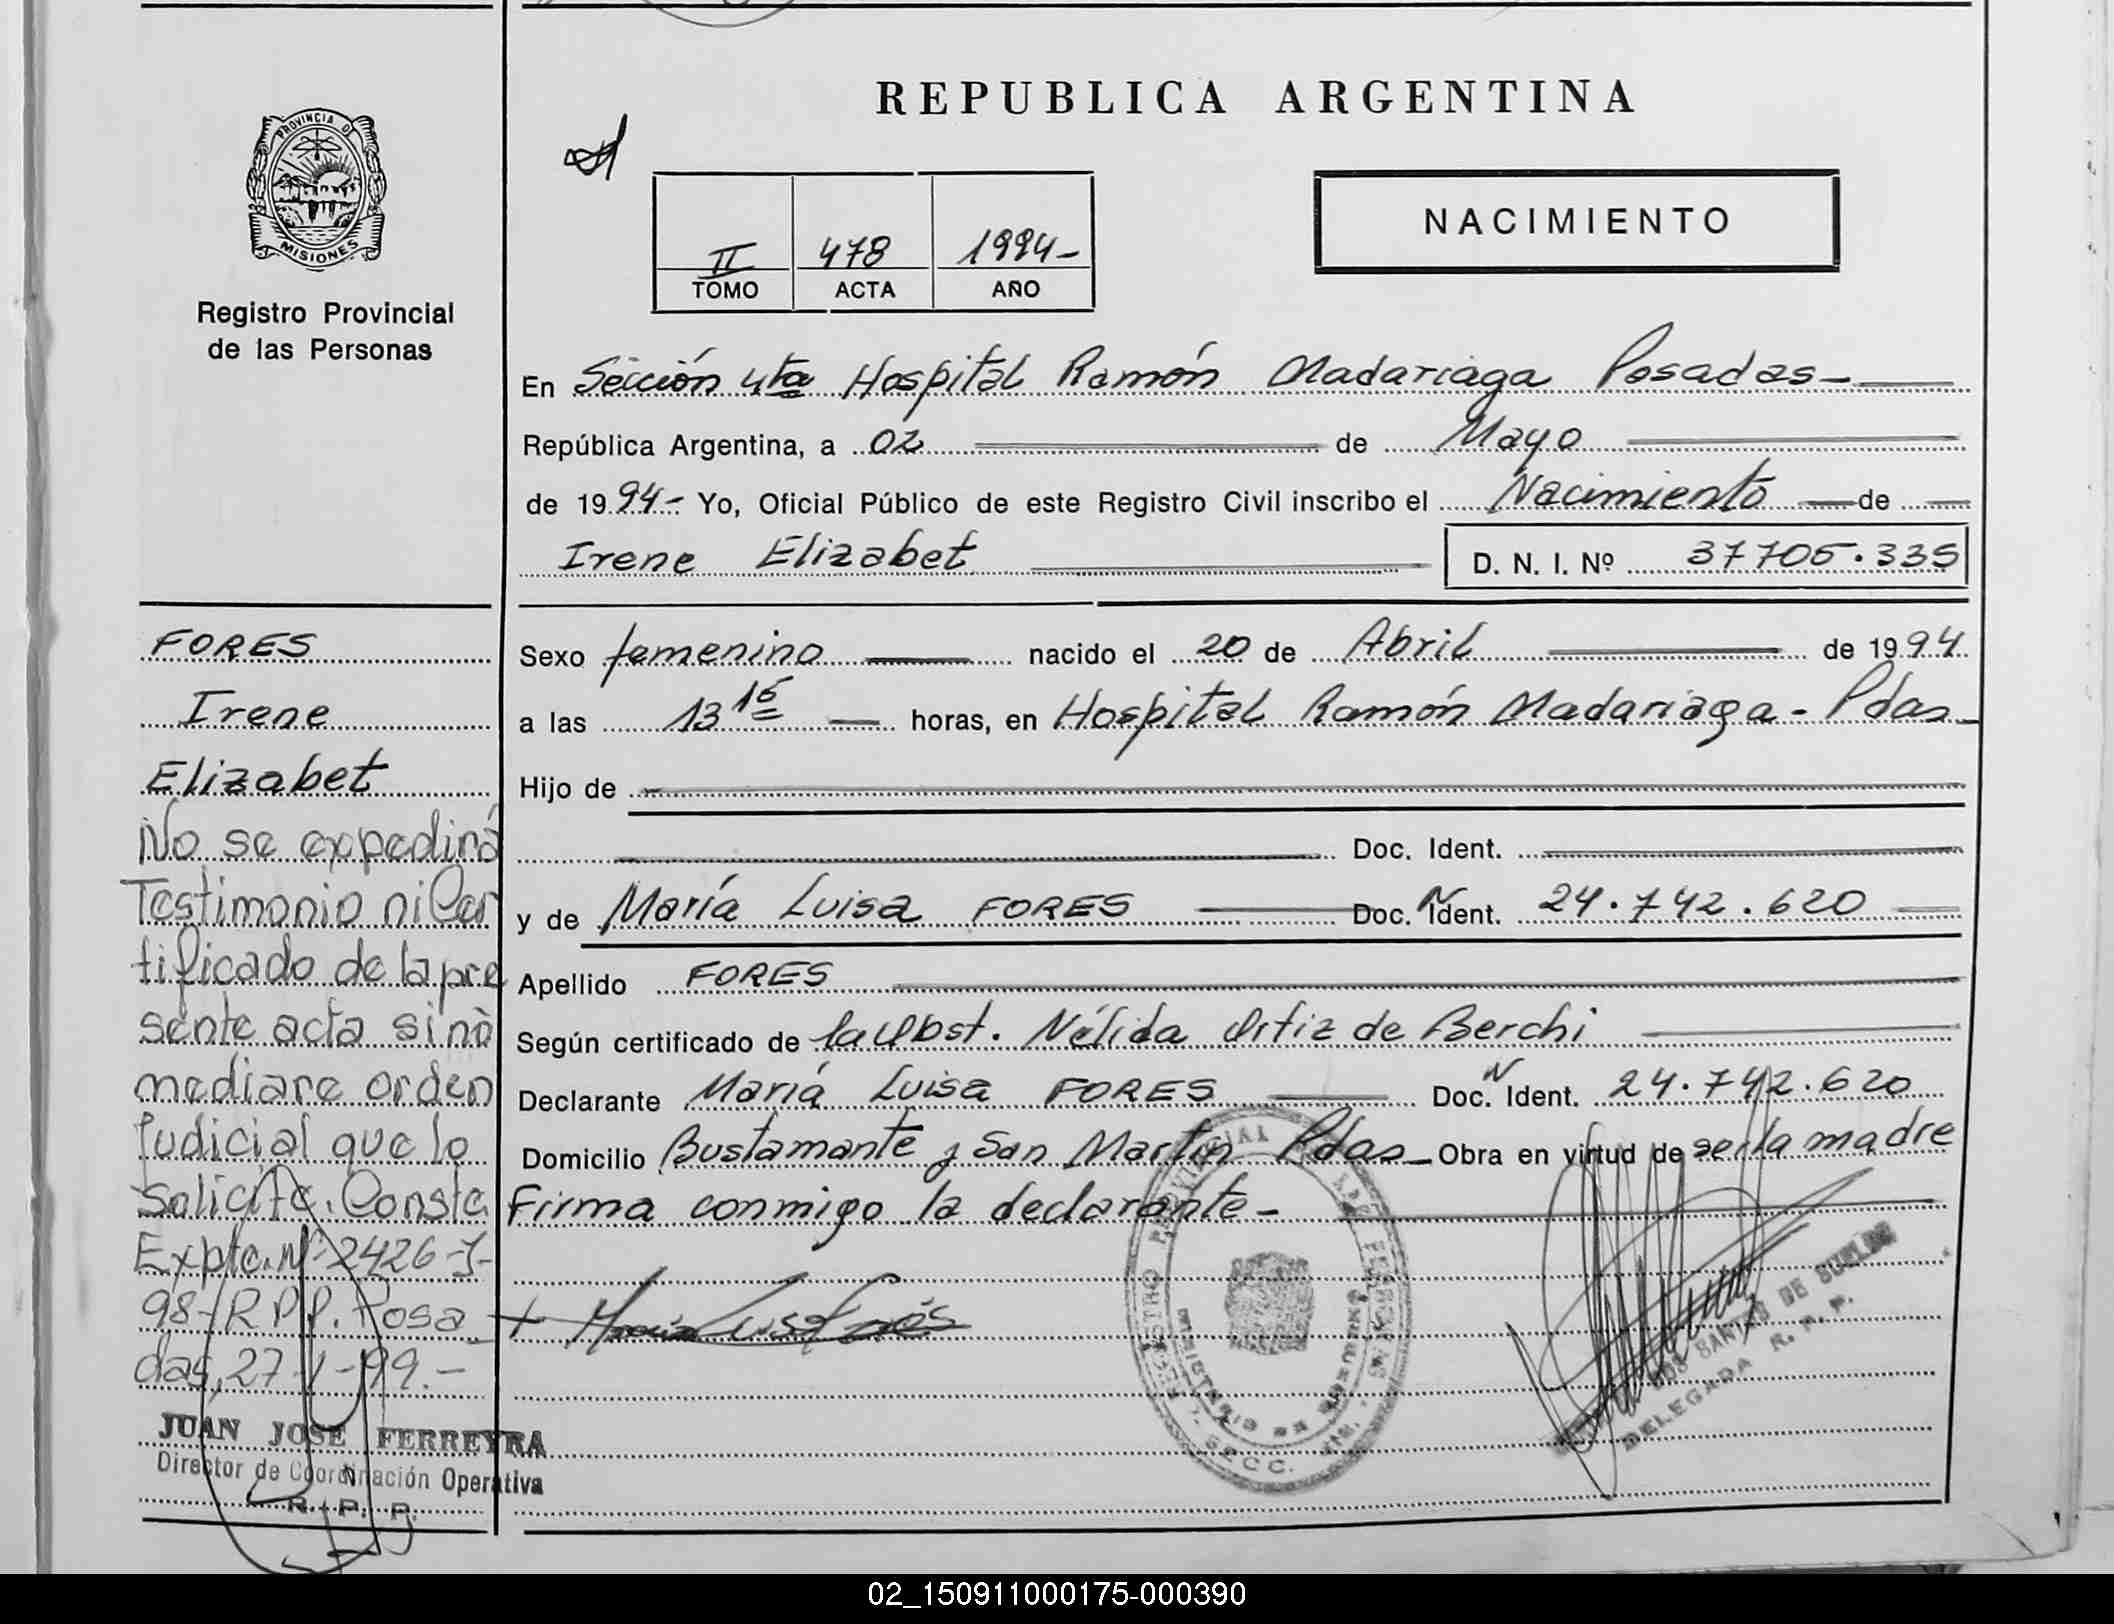 REPUBLICA ARGENTINA
PROVINCIA D
MISIONES
Registro Provincial
de las Personas
II 478 1994-
TOMO ACTA AÑO
NACIMIENTO
En Sección 4ta Hospital Ramón Madariaga Posadas-
República Argentina, a 02 de Mayo
de 1994- Yo, Oficial Público de este Registro Civil inscribo el Nacimiento de
Irene Elizabet D. N. I. Nº 37705.335
FORES
Irene
Elizabet
No se expedirá
Testimonio ni Cer
tificado de la pre
sente acta sinò
mediare orden
Judicial que lo
Solicite. Consta
Expte. Nº 2426-J-
98-R.P.P. Posa
das, 27-1-99.-
JUAN JOSE FERREYRA
Director de Coordinación Operativa
R. P. P.
Sexo femenino nacido el 20 de Abril de 1994
a las 13 15 horas, en Hospital Ramón Madariaga - Pdas
Hijo de
Doc. Ident.
y de María Luisa FORES Doc. N Ident. 24.742.620
Apellido FORES
Según certificado de la Obst. Nélida Ortiz de Berchi
Declarante María Luisa FORES Doc. N Ident. 24.742.620
Domicilio Bustamante y San Martín Pdas- Obra en virtud de ser la madre
Firma conmigo la declarante-
María Luisa Forés
REGISTRO PROVINCIAL DE LAS PERSONAS
MINISTERIO DE GOBIERNO
SECC.
DOS SANTOS DE
DELEGADA R. P. P.
02_150911000175-000390